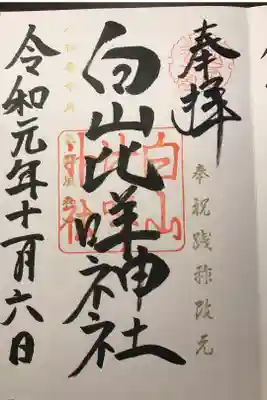 奉拝
奉祝践祚改元
白山比咩神社
白山比咩神社
令和元年十一月六日